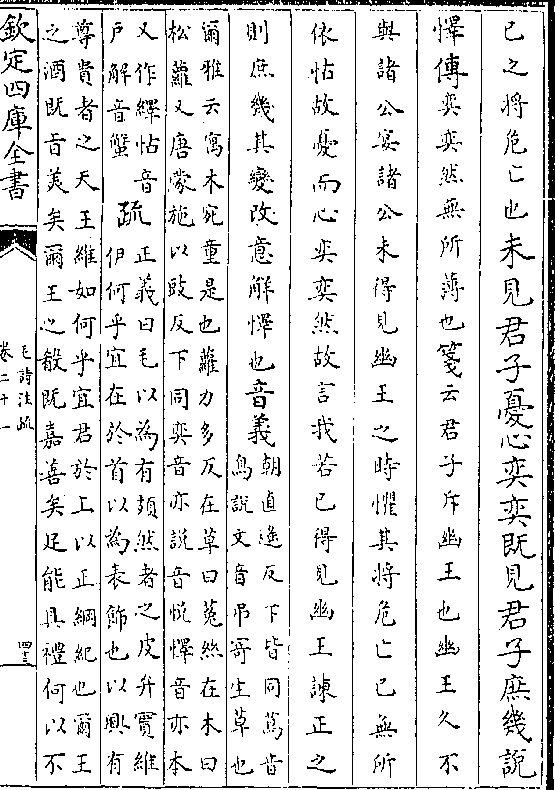 已之將危亡也未見君子憂心奕奕既見君子庶幾說
懌傳奕奕然無所薄也箋云君子斥幽王也幽王久不
與諸公宴諸公未得見幽王之時懼其將危亡已無所
依怙故憂而心奕奕然故言我若已得見幽王諫正之
則庶幾其變改意解懌也音義
朝直遥反下皆同蔦音
鳥說文音弔寄生草也
爾雅云寓木宛童是也蘿力多反在草曰菟絲在木曰
松蘿又唐蒙施以豉反下同奕音亦說音悅懌音亦本
又作繹怙音
户解音蟹
疏
正義曰毛以為有頍然者之皮弁實維
伊何乎宜在於首以為表飾也以興有
尊貴者之天王維如何乎宜君於上以正綱紀也爾王
之酒既旨美矣爾王之殽既嘉善矣足能具禮何以不
欽定四庫全書
毛詩注疏
卷二十一
四三